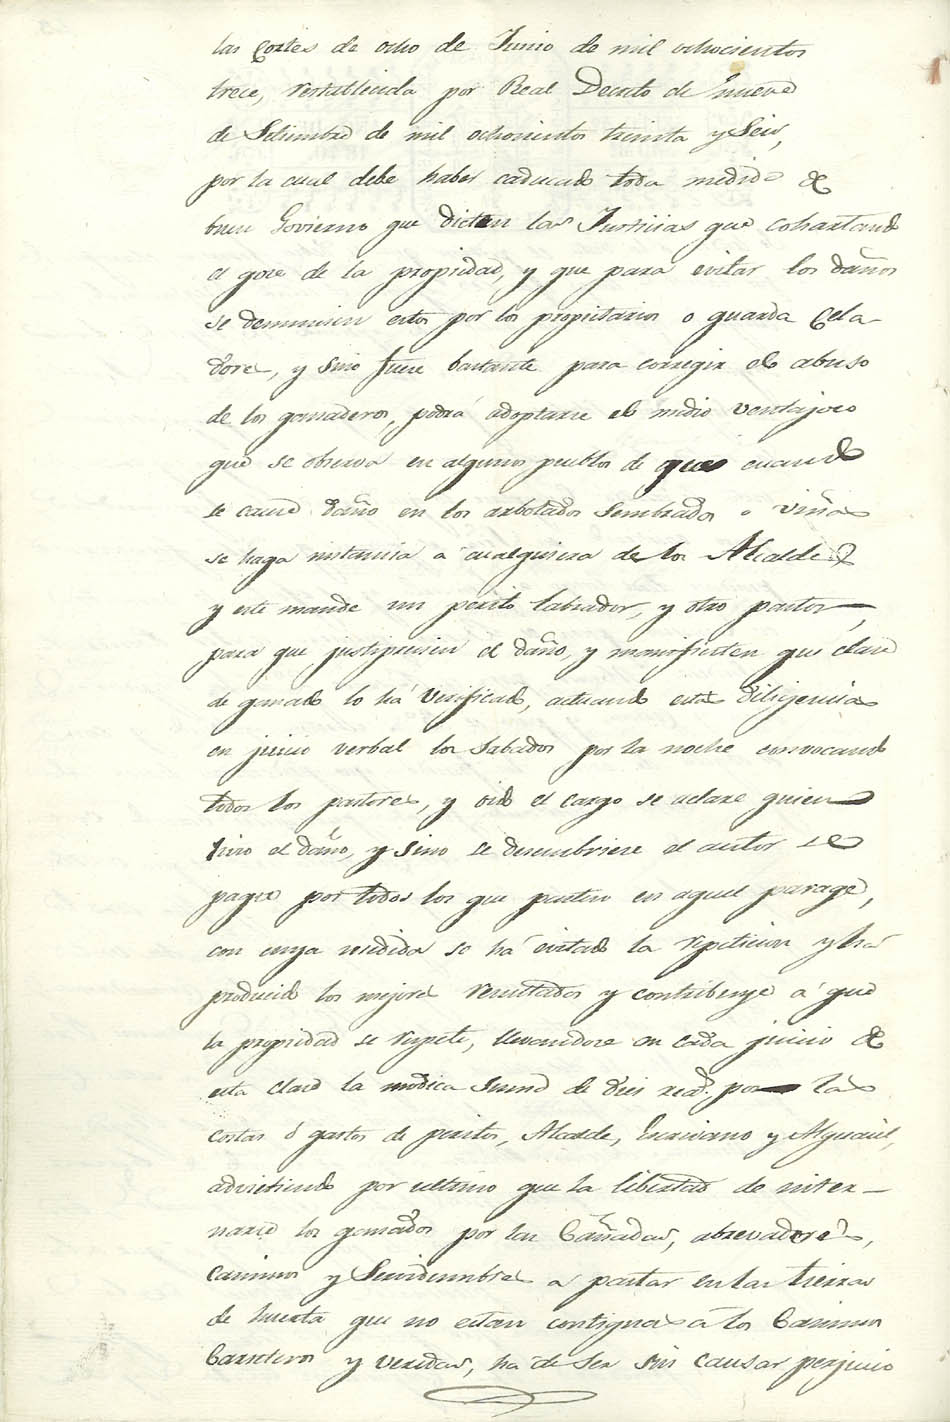 las Cortes de ocho de Junio de mil ochocientos
trece, restablecida por Real Decreto de Nueve
de Setiembre de mil ochocientos treinta y Seis,
por la cual debe haber caducado toda medida de
buen Govierno que dicten las Justicias que cohartando
el goze de la propiedad, y que para evitar los daños
se denuncien estos por los propietarios o guarda Cela-
dores, y sino fuere bastante para corregir el abuso
de los ganaderos, podrá adoptarse el medio ventajoso
que se observa en algunos pueblos de que cuando
se cause daño en los arbolados Sembrados o viñas
se haga instancia a cualquiera de los Alcaldes
y este mande un perito labrador, y otro pastor,
para que justiprecien el daño, y manifiesten que clase
de ganado lo há verificado, actuando estas diligencias
en juicio verbal los Sabados por la noche convocando
todos los pastores, y oido el cargo se aclare quien
hizo el daño, y Sino se descubriese el autor se
pague por todos los que pasten en aquel parage,
con cuya medida se há evitado la repeticion y há
producido los mejores resultados y contribuye á que
la propiedad se respete, llevandose en cada juicio de
esta clase la modica Suma de diez reas. por las
costas ó gastos de peritos, Alcalde, Escrivano y Alguacil,
advirtiendo por ultimo que la libertad de inter-
narse los ganados por las Cañadas, abrevaderos,
Caminos y Servidumbres a pastar en las tierras
de huerta que no estan contiguas á los Caminos
Carreteros y veredas, ha de ser sin causar perjuicio